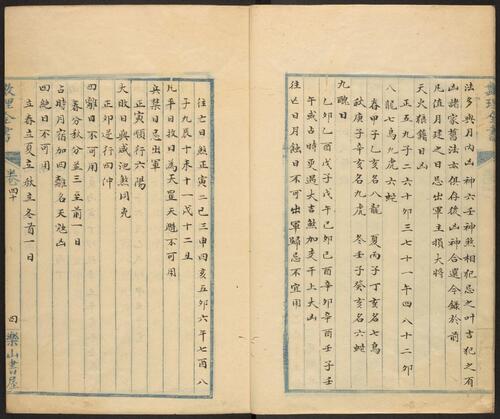 法多與月內凶神六壬神煞相犯忌之叶吉犯之有
凶諸家舊法士俱存後凶神合選今錄於前
凡值月建之日忌出軍主損大將
天火狼籍日凶
正五九子二六十卯三七十一午四八十二卯
八龍七鳥九虎六蛇
春甲子乙亥名八龍 夏丙子丁亥名七鳥
秋庚子辛亥名九虎 冬壬子癸亥名六蛇
九醜日
乙卯乙酉戊子戊午己卯己酉辛卯辛酉壬子壬
午或占時更遇大吉煞加支干上大凶
往亡日月蝕日不可出軍歸忌不宜用
往亡日煞正寅二巳三申四亥五卯六午七酉八
子九辰十未十一戌十二丑
兵禁日忌出軍
正寅順行六陽
大敗日與咸池煞同先
正卯逆行四仲
四離日不可用
春分秋分並三至前一日
占時月宿加四離名天煞凶
四絕日不可用
立春立夏立秋立冬前一日
數理全書
卷四十
四
樂山書屋